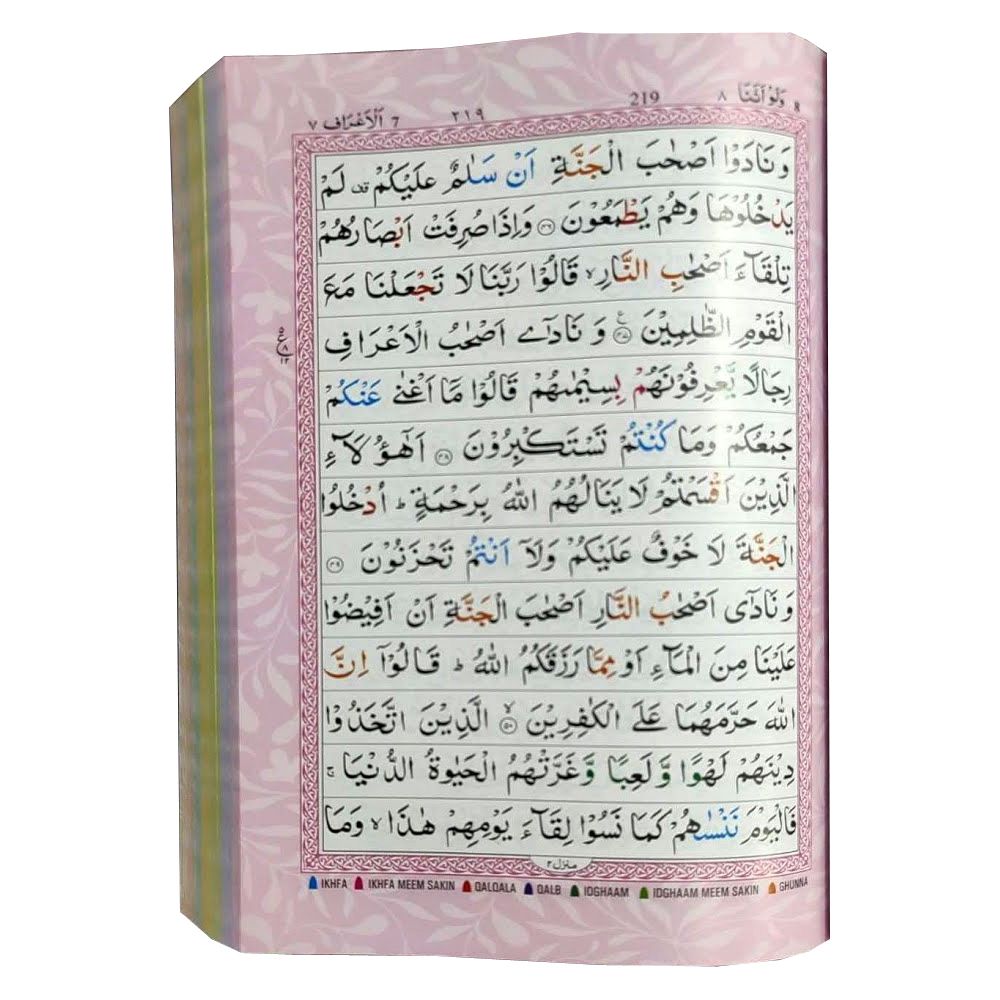 ٨ وَلَوْ اَنَّنَا 8
219
٢١٩
اَلْاَعْرَاف ٧ 7
وَنَادَوْا اَصْحٰبَ الْجَنَّةِ اَنْ سَلٰمٌ عَلَيْكُمْ قف لَمْ
يَدْخُلُوْهَا وَهُمْ يَطْمَعُوْنَ ۝٤٦ وَاِذَا صُرِفَتْ اَبْصَارُهُمْ
تِلْقَآءَ اَصْحٰبِ النَّارِ ۙ قَالُوْا رَبَّنَا لَا تَجْعَلْنَا مَعَ
الْقَوْمِ الظّٰلِمِيْنَ ۝٤٧ ع وَنَادٰٓى اَصْحٰبُ الْاَعْرَافِ
رِجَالًا يَّعْرِفُوْنَهُمْ بِسِيْمٰىهُمْ قَالُوْا مَآ اَغْنٰى عَنْكُمْ
جَمْعُكُمْ وَمَا كُنْتُمْ تَسْتَكْبِرُوْنَ ۝٤٨ اَهٰٓؤُلَآءِ
الَّذِيْنَ اَقْسَمْتُمْ لَا يَنَالُهُمُ اللّٰهُ بِرَحْمَةٍ ؕ اُدْخُلُوا
الْجَنَّةَ لَا خَوْفٌ عَلَيْكُمْ وَلَآ اَنْتُمْ تَحْزَنُوْنَ ۝٤٩
وَنَادٰٓى اَصْحٰبُ النَّارِ اَصْحٰبَ الْجَنَّةِ اَنْ اَفِيْضُوْا
عَلَيْنَا مِنَ الْمَآءِ اَوْ مِمَّا رَزَقَكُمُ اللّٰهُ ؕ قَالُوْٓا اِنَّ
اللّٰهَ حَرَّمَهُمَا عَلَى الْكٰفِرِيْنَ ۝٥٠ ۙ الَّذِيْنَ اتَّخَذُوْا
دِيْنَهُمْ لَهْوًا وَّلَعِبًا وَّغَرَّتْهُمُ الْحَيٰوةُ الدُّنْيَا ۚ
فَالْيَوْمَ نَنْسٰىهُمْ كَمَا نَسُوْا لِقَآءَ يَوْمِهِمْ هٰذَا ۙ وَمَا
منزل ٢
IKHFA IKHFA MEEM SAKIN QALQALA QALB IDGHAAM IDGHAAM MEEM SAKIN GHUNNA